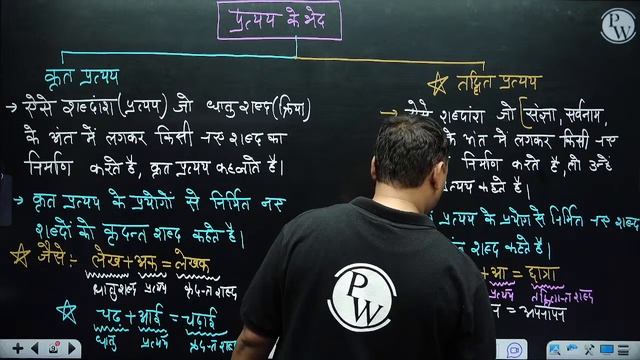 प्रत्यय के भेद
PW
कृत प्रत्यय
→ ऐसे शब्दांश (प्रत्यय) जो धातु शब्द (क्रिया)
के अंत में लगकर किसी नए शब्द का
निर्माण करते है, कृत प्रत्यय कहलाते है।
→ कृत प्रत्यय के प्रयोगों से निर्मित नए
शब्दों को कृदन्त शब्द कहते है।
☆ जैसे :- लेख + अक = लेखक
धातु शब्द प्रत्यय कृदन्त शब्द
☆ चढ + आई = चढाई
धातु प्रत्यय कृदन्त शब्द
☆ तद्धित प्रत्यय
→ ऐसे शब्दांश जो [संज्ञा, सर्वनाम,
के अंत में लगकर किसी नए
निर्माण करते है, तो उन्हें
प्रत्यय कहते है।
प्रत्यय के प्रयोग से निर्मित नए शब्द
शब्द कहते है।
+ आ = छात्रा
प्रत्यय तद्धितान्त शब्द
= अपनापन
PW